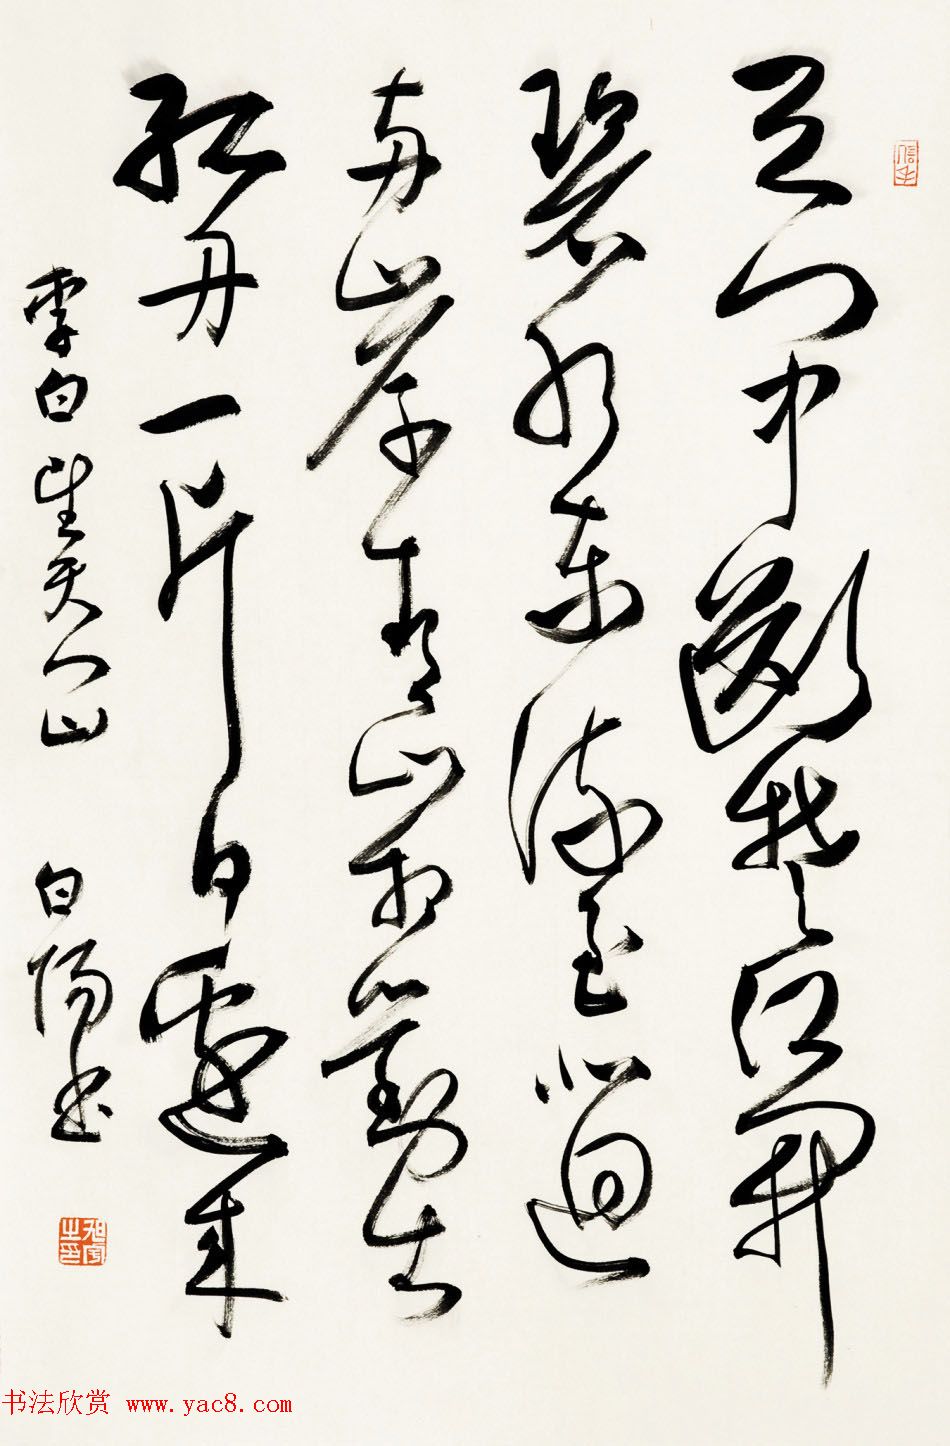 天门中断楚江开
碧水东流至此迴
两岸青山相对出
孤舟一片日边来
李白望天门山 白阳书
书法欣赏 www.yac8.com